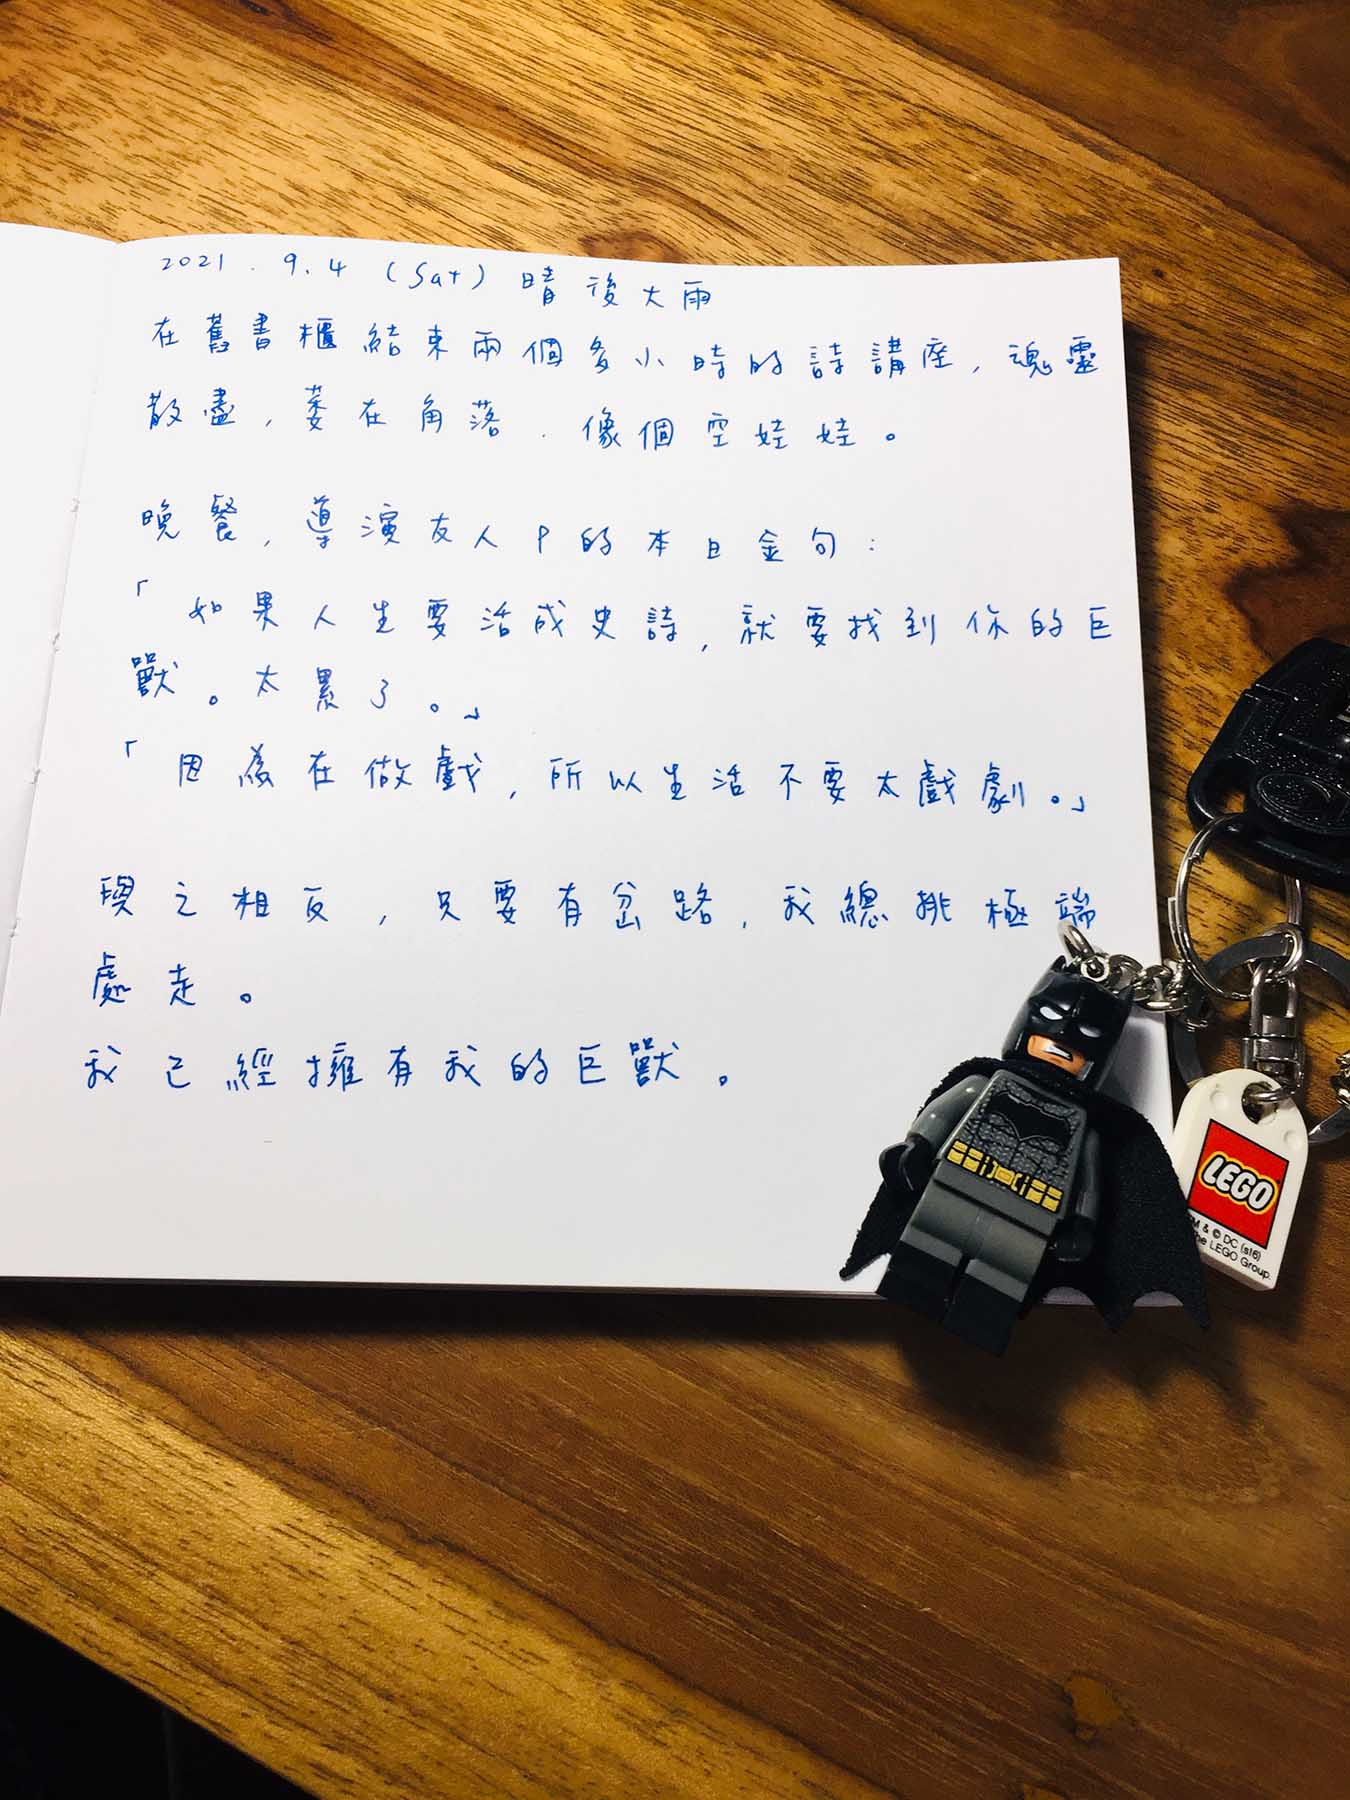 2021.9.4 (Sat) 晴後大雨
在舊書櫃結束兩個多小時的詩講座，魂靈
散盡，萎在角落．像個空娃娃。
晚餐，導演友人P的本日金句：
「如果人生要活成史詩，就要找到你的巨
獸。太累了。」
「因為在做戲，所以生活不要太戲劇。」
與之相反，只要有岔路，我總挑極端
處走。
我已經擁有我的巨獸。
LEGO
TM & © DC (s16)
The LEGO Group.